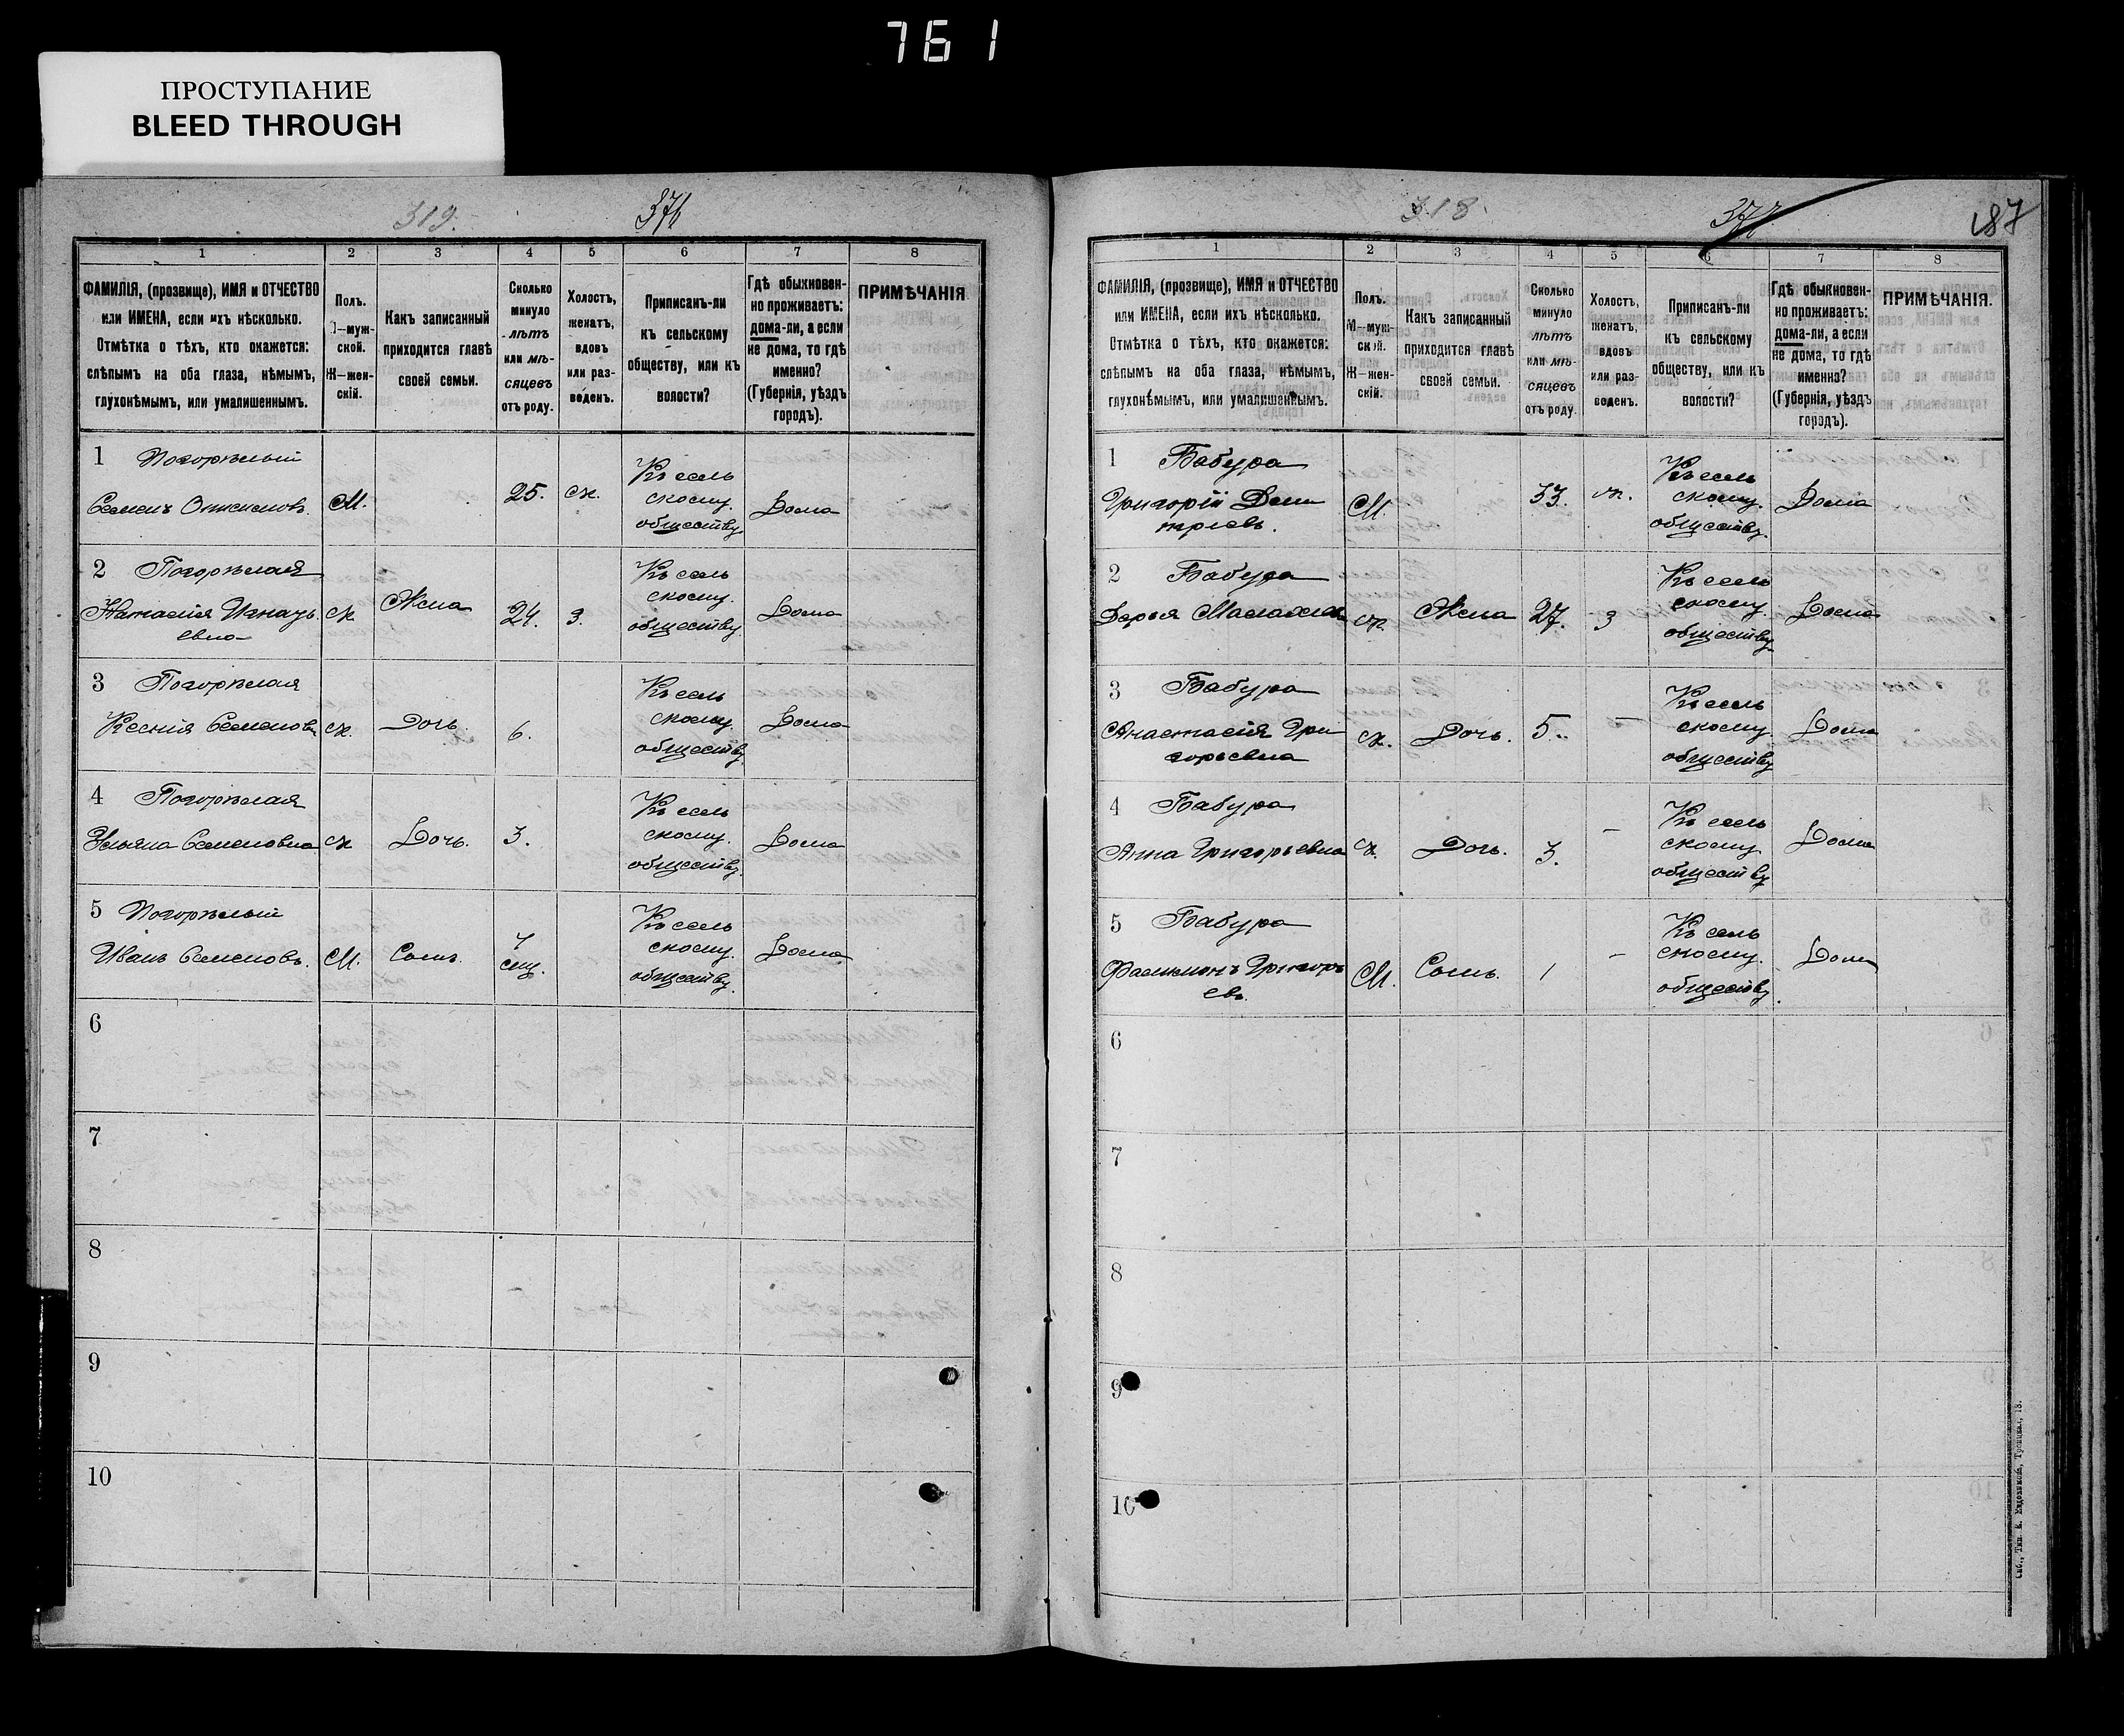 761
ПРОСТУПАНИЕ
BLEED THROUGH
319.
376
1 2 3 4 5 6 7 8
ФАМИЛІЯ, (прозвище), ИМЯ и ОТЧЕСТВО
или ИМЕНА, если ихъ нѣсколько.
Отмѣтка о тѣхъ, кто окажется:
слѣпымъ на оба глаза, нѣмымъ,
глухонѣмымъ, или умалишеннымъ.
Полъ.
М—муж-
ской.
Ж—жен-
скій.
Какъ записанный
приходится главѣ
своей семьи.
Сколько
минуло
лѣтъ
или мѣ-
сяцевъ
отъ роду.
Холостъ,
женатъ,
вдовъ
или раз-
веденъ.
Приписанъ-ли
къ сельскому
обществу, или къ
волости?
Гдѣ обыкновен-
но проживаетъ:
дома-ли, а если
не дома, то гдѣ
именно?
(Губернія, уѣздъ
городъ).
ПРИМѢЧАНІЯ
1 Погорѣлый
Семенъ М. 25. ж. Къ сель
скому
обществу Дома
2 Погорѣлая
Наталія Игнать
евна ж Жена 24. з. Къ сель
скому
обществу Дома
3 Погорѣлая
Ксенія Семенов ж. Дочь 6. Къ сель
скому
обществу Дома
4 Погорѣлая
Ульяна Семеновна ж Дочь. 3. Къ сель
скому
обществу Дома
5 Погорѣлый
Иванъ Семеновъ. М. Сынъ. Къ сель
скому
обществу Дома
6
7
8
9
10
318.
377
187
1 2 3 4 5 6 7 8
ФАМИЛІЯ, (прозвище), ИМЯ и ОТЧЕСТВО
или ИМЕНА, если ихъ нѣсколько.
Отмѣтка о тѣхъ, кто окажется:
слѣпымъ на оба глаза, нѣмымъ,
глухонѣмымъ, или умалишеннымъ.
Полъ.
М—муж-
ской.
Ж—жен-
скій.
Какъ записанный
приходится главѣ
своей семьи.
Сколько
минуло
лѣтъ
или мѣ-
сяцевъ
отъ роду.
Холостъ,
женатъ,
вдовъ
или раз-
веденъ.
Приписанъ-ли
къ сельскому
обществу, или къ
волости?
Гдѣ обыкновен-
но проживаетъ:
дома-ли, а если
не дома, то гдѣ
именно?
(Губернія, уѣздъ
городъ).
ПРИМѢЧАНІЯ.
1 Бабура
Григорій Дми
тріевъ. М. 33. ж. Къ сель
скому
обществу Дома
2 Бабура
Дарья ж. Жена 27. з Къ сель
скому
обществу Дома
3 Бабура
Анастасія Гри
горьевна ж. Дочь. 5. – Къ сель
скому
обществу Дома
4 Бабура
Анна Григорьевна ж. Дочь. 3. – Къ сель
скому
обществу Дома
5 Бабура
Филимонъ Григорь
евъ М. Сынъ. 1 – Къ сель
скому
обществу Дома
6
7
8
9
10